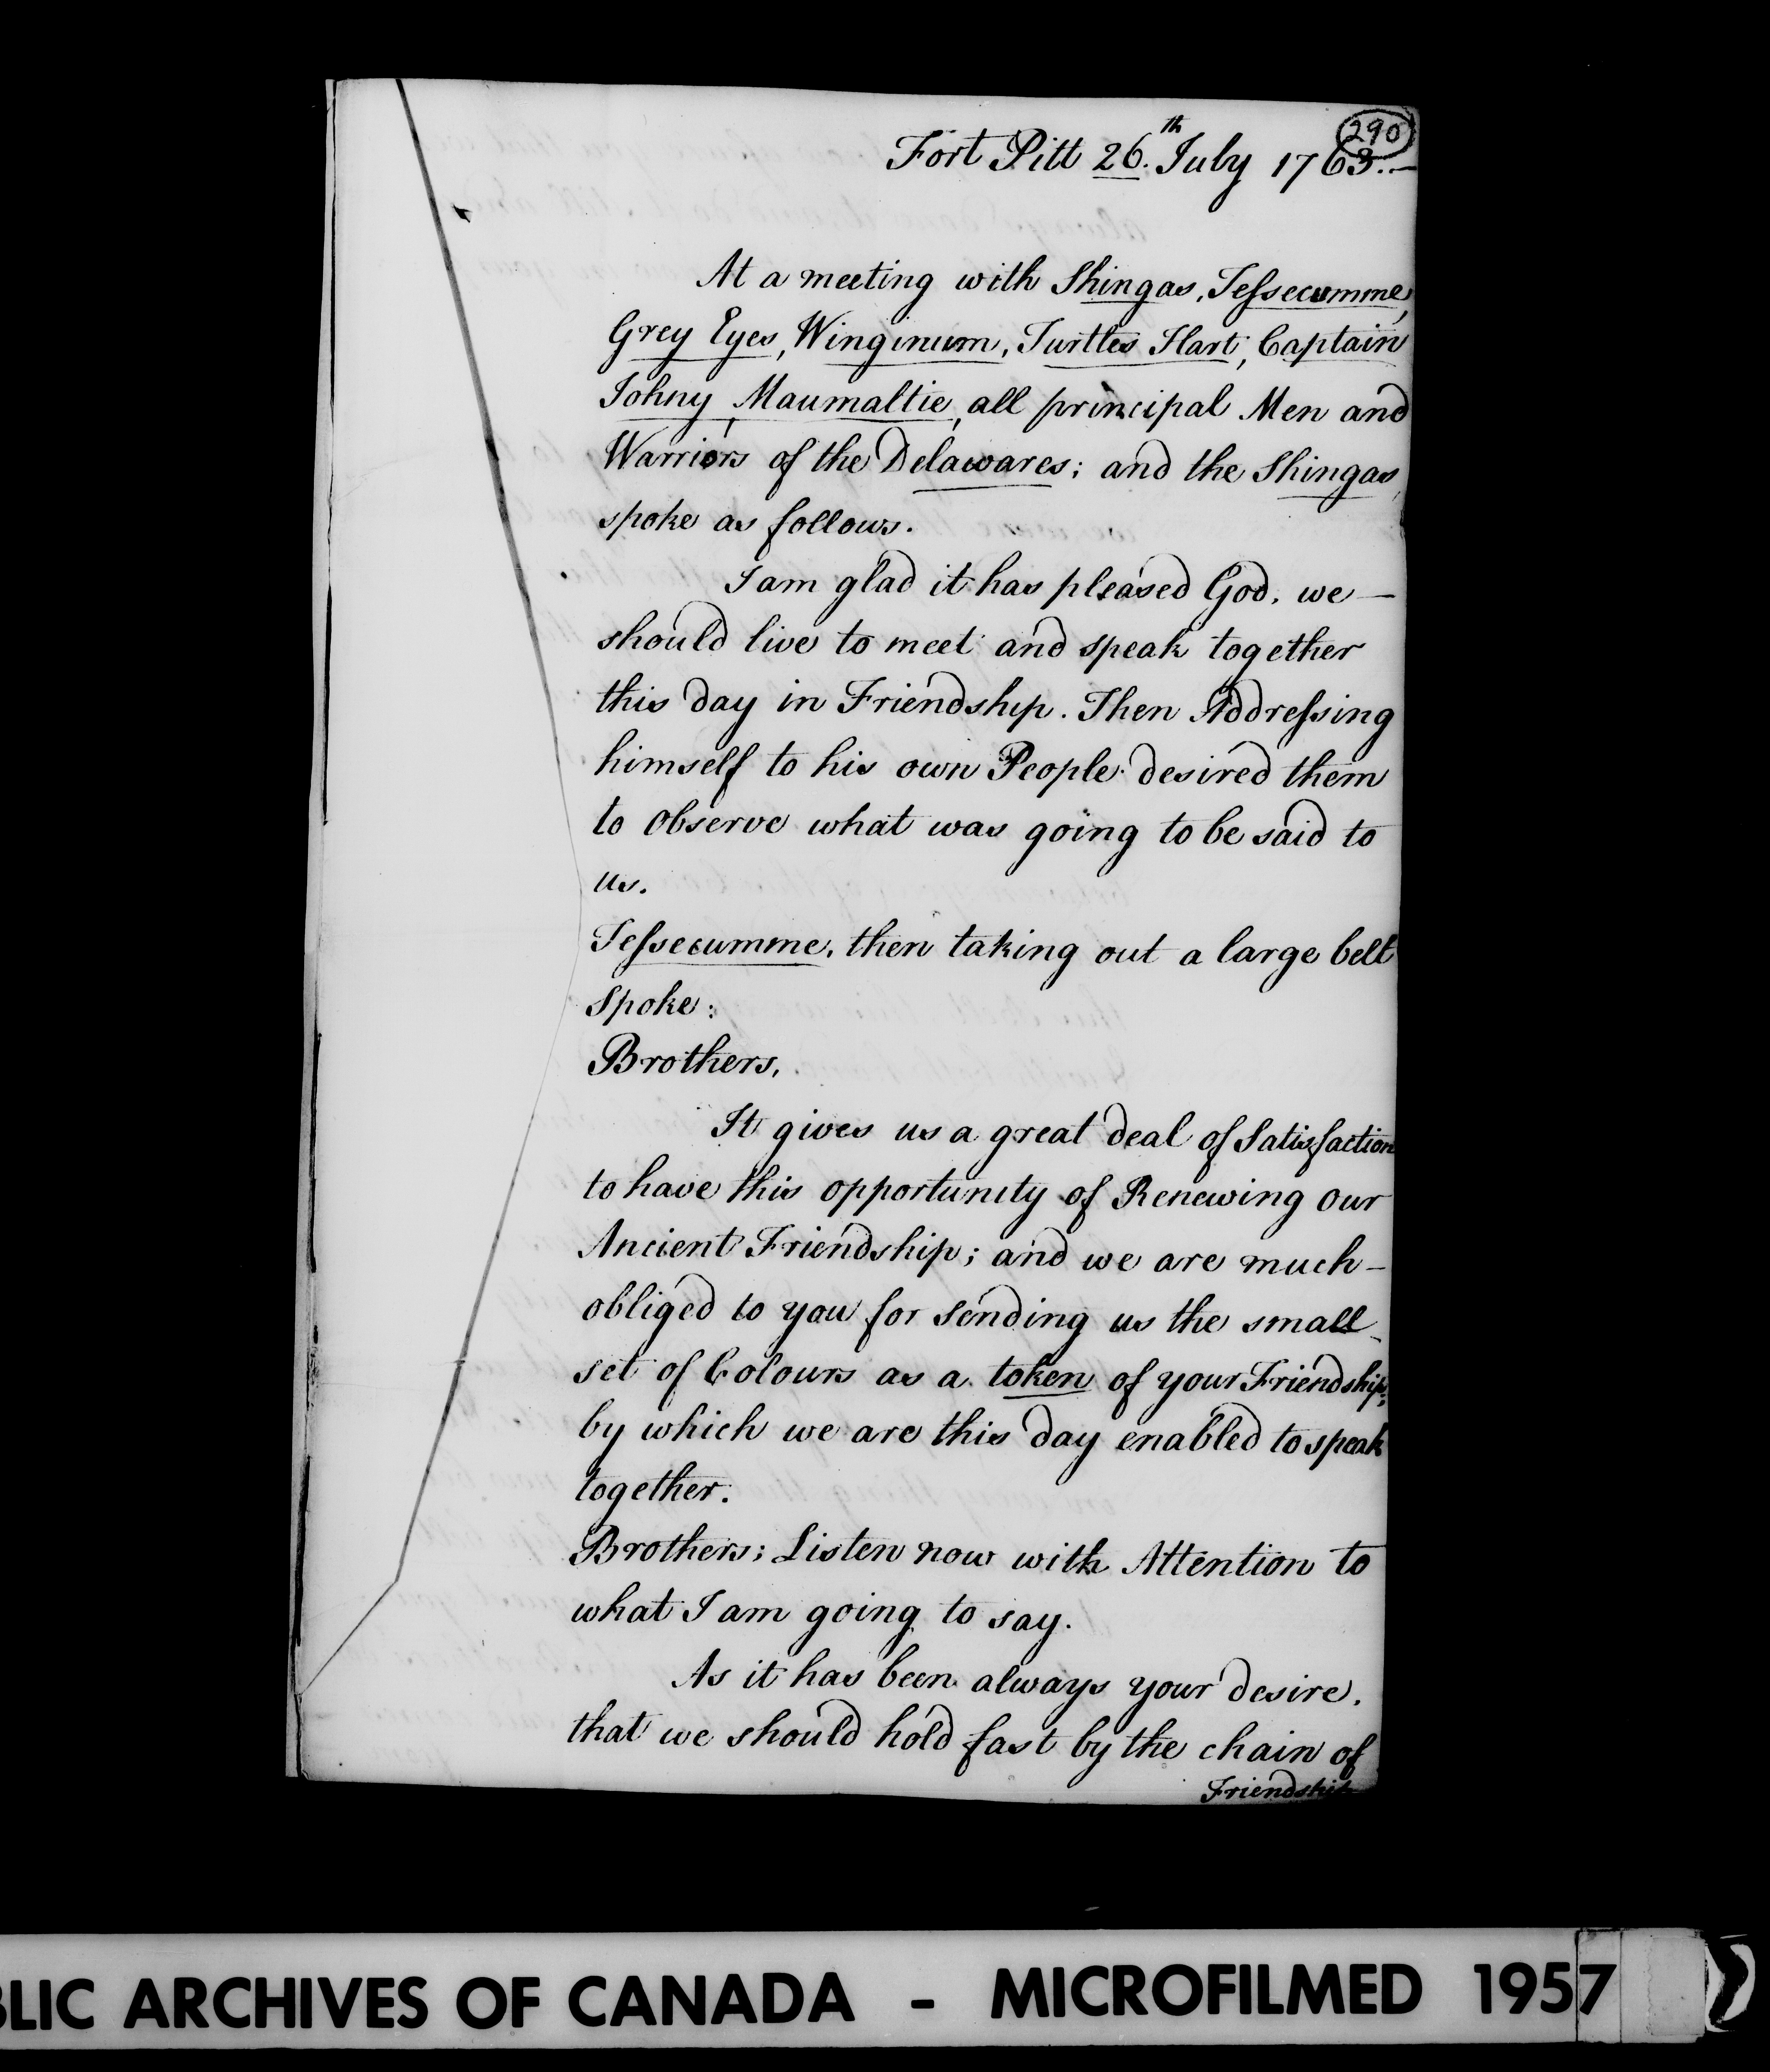 290
Fort Pitt 26.th July 1763.-
At a meeting with Shingas, Tessecumme,
Grey Eyes, Winginum, Turtles Hart, Captain
Johny, Maumaltie, all principal Men and
Warriors of the Delawares; and the Shingas,
spoke as follows.
I am glad it has pleased God, we —
should live to meet and speak together
this day in Friendship. Then Addressing
himself to his own People desired them
to Observe what was going to be said to
us.
Tessecumme, then taking out a large belt
Spoke:
Brothers,
It gives us a great deal of Satisfaction
to have this opportunity of Renewing our
Ancient Friendship; and we are much —
obliged to you for sending us the small
set of Colours as a token of your Friendship,
by which we are this day enabled to speak
together.
Brothers; Listen now with Attention to
what I am going to say.
As it has been always your desire,
that we should hold fast by the chain of
Friendship
BLIC ARCHIVES OF CANADA - MICROFILMED 1957